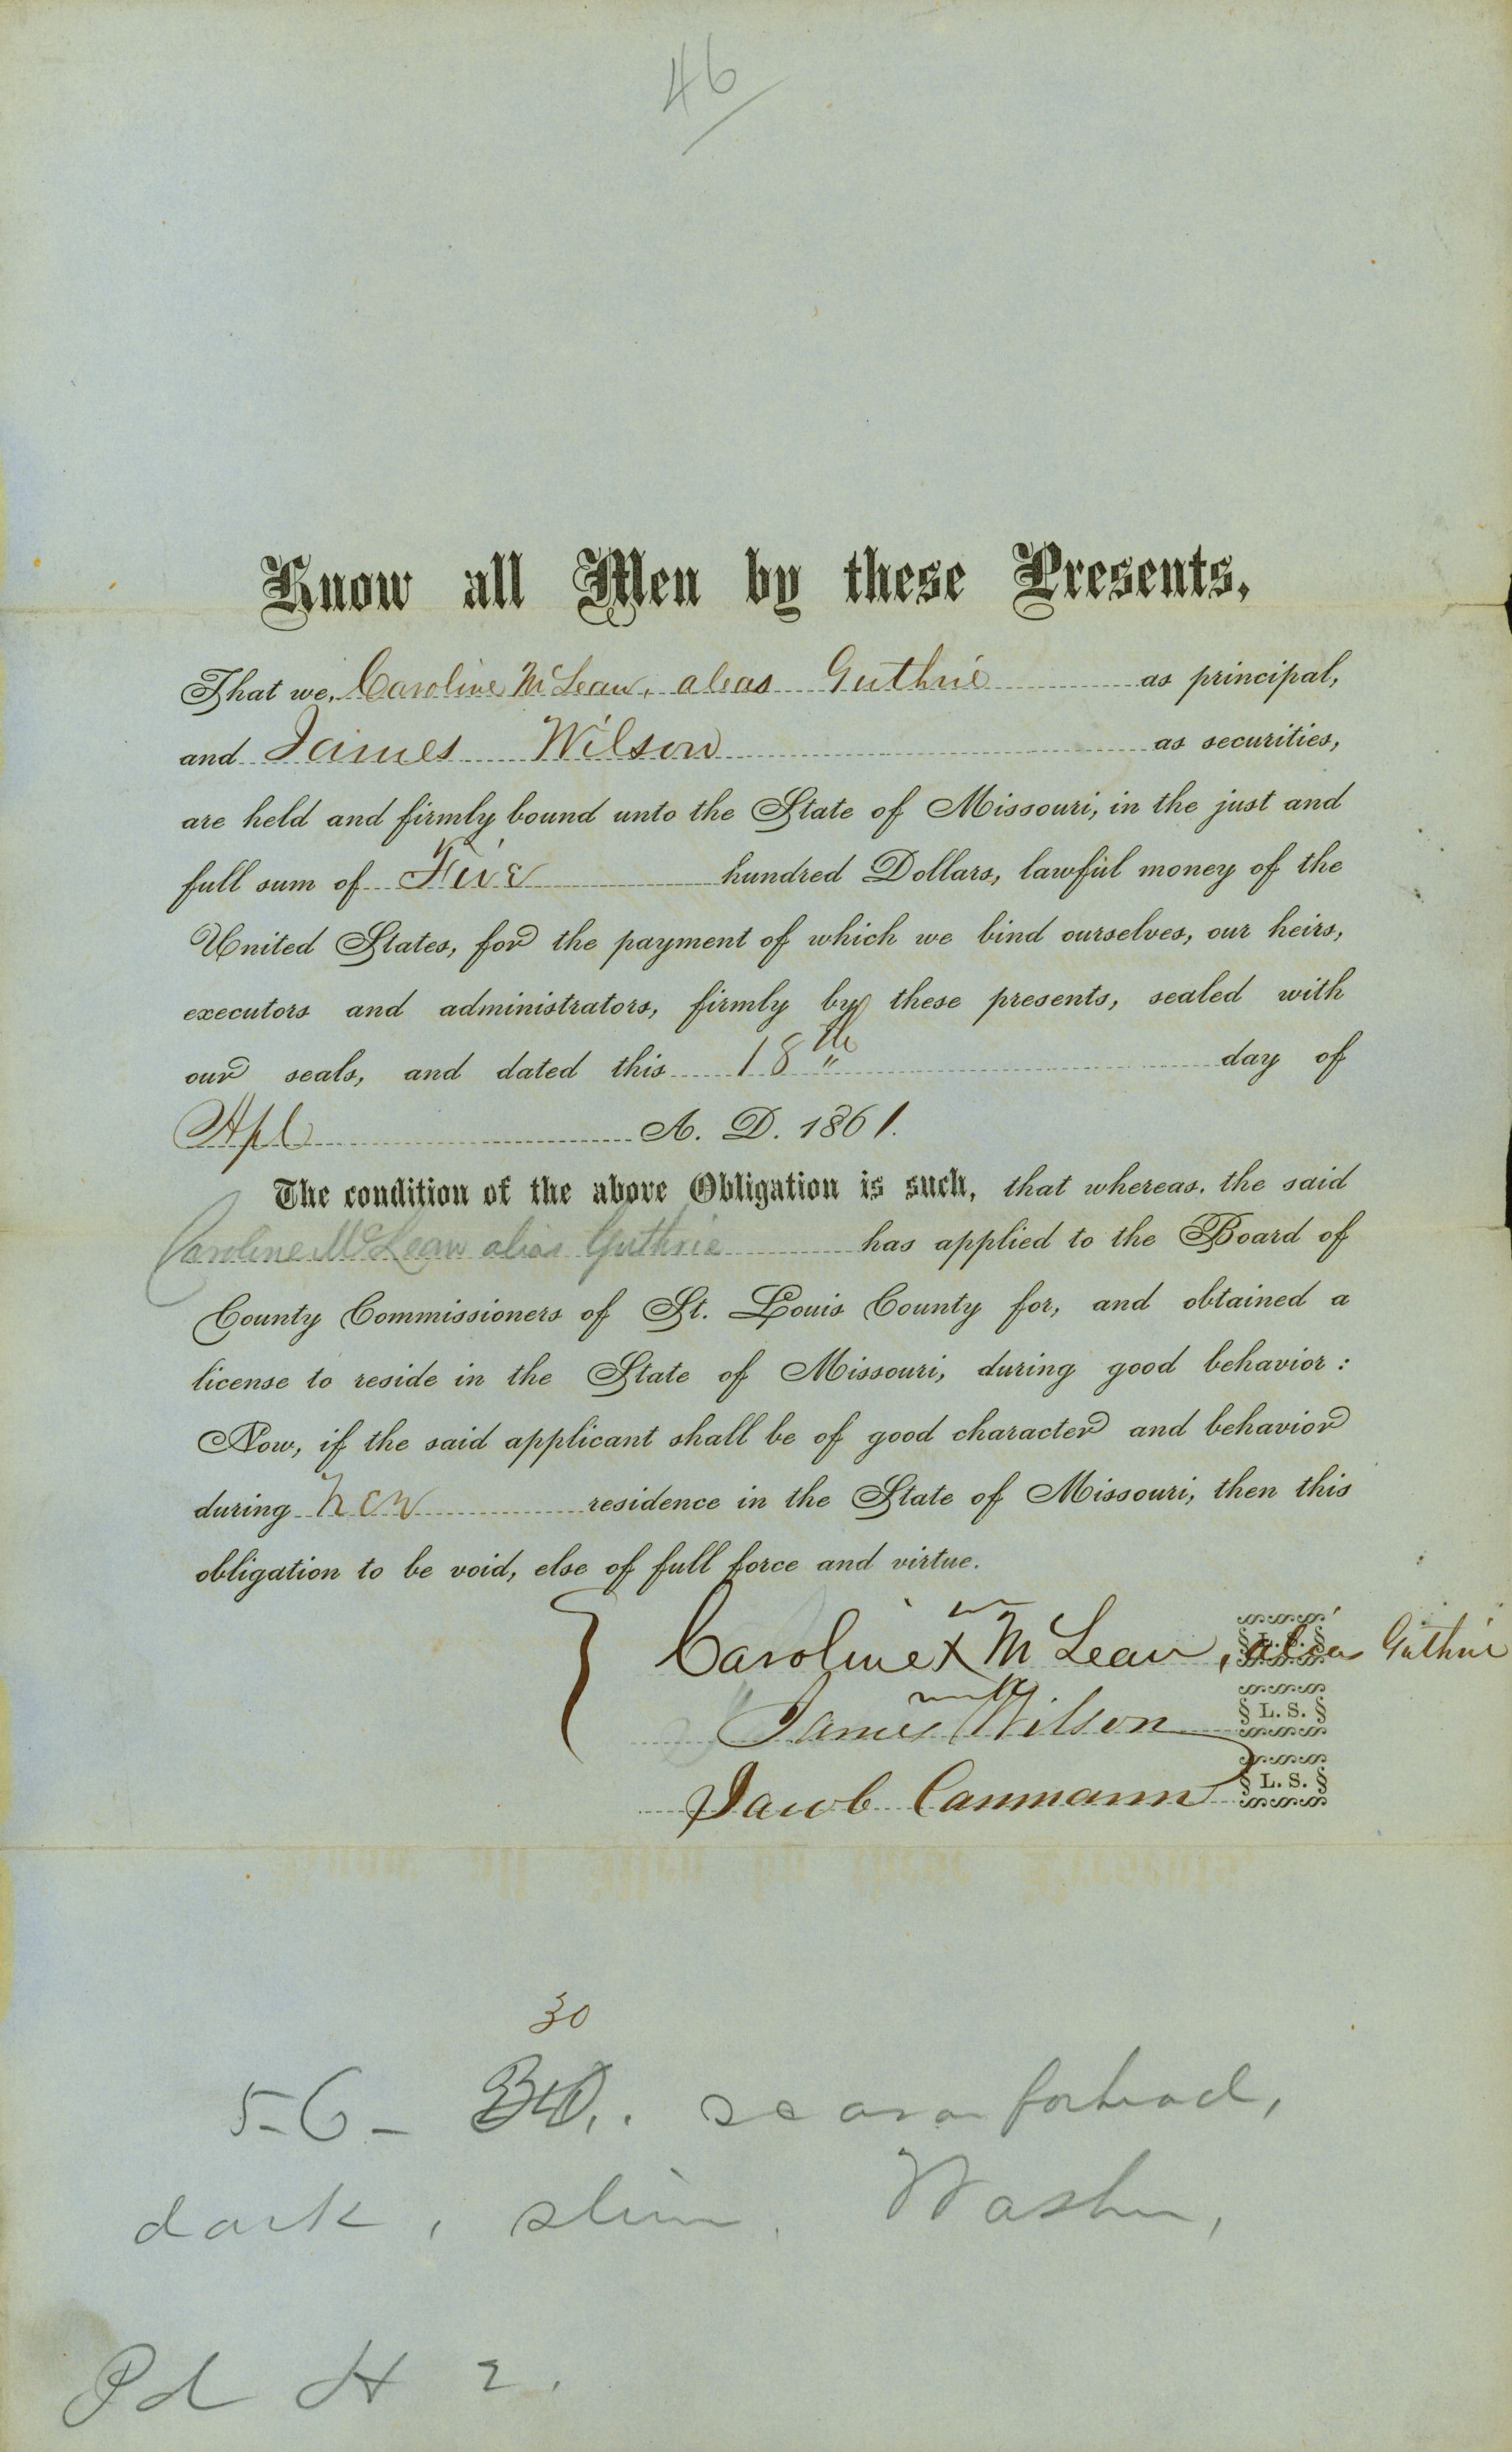 46
Know all Men by these Presents,
That we, Caroline McLean, aleas Guthrie as principal,
and James Wilson as securities,
are held and firmly bound unto the State of Missouri, in the just and
full sum of Five hundred Dollars, lawful money of the
United States, for the payment of which we bind ourselves, our heirs,
executors and administrators, firmly by these presents, sealed with
our seals, and dated this 18th day of
Apl A. D. 1861.
The condition of the above Obligation is such, that whereas, the said
Caroline McLean alias Guthrie has applied to the Board of
County Commissioners of St. Louis County for, and obtained a
license to reside in the State of Missouri, during good behavior:
Now, if the said applicant shall be of good character and behavior
during her residence in the State of Missouri, then this
obligation to be void, else of full force and virtue.
Caroline X McLean, alias Guthrie L. S.
James Wilson L. S.
Jacob Canmann L. S.
30
5-6- scar on forhead,
dark, slim. Washer,
Pd H 2.